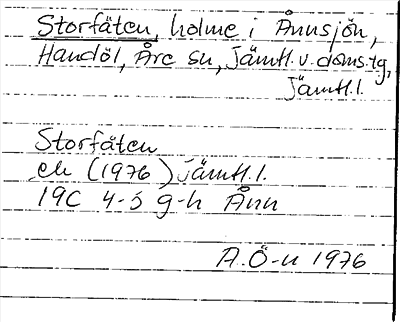 Storfäten, holme i Ånnsjön,
Handöl, Åre sn, Jämtl. v. doms. tg,
Jämtl. l.
Storfäten
ek (1976) Jämtl. l.
19C 4-5 g-h Ånn
A.Ö-n 1976